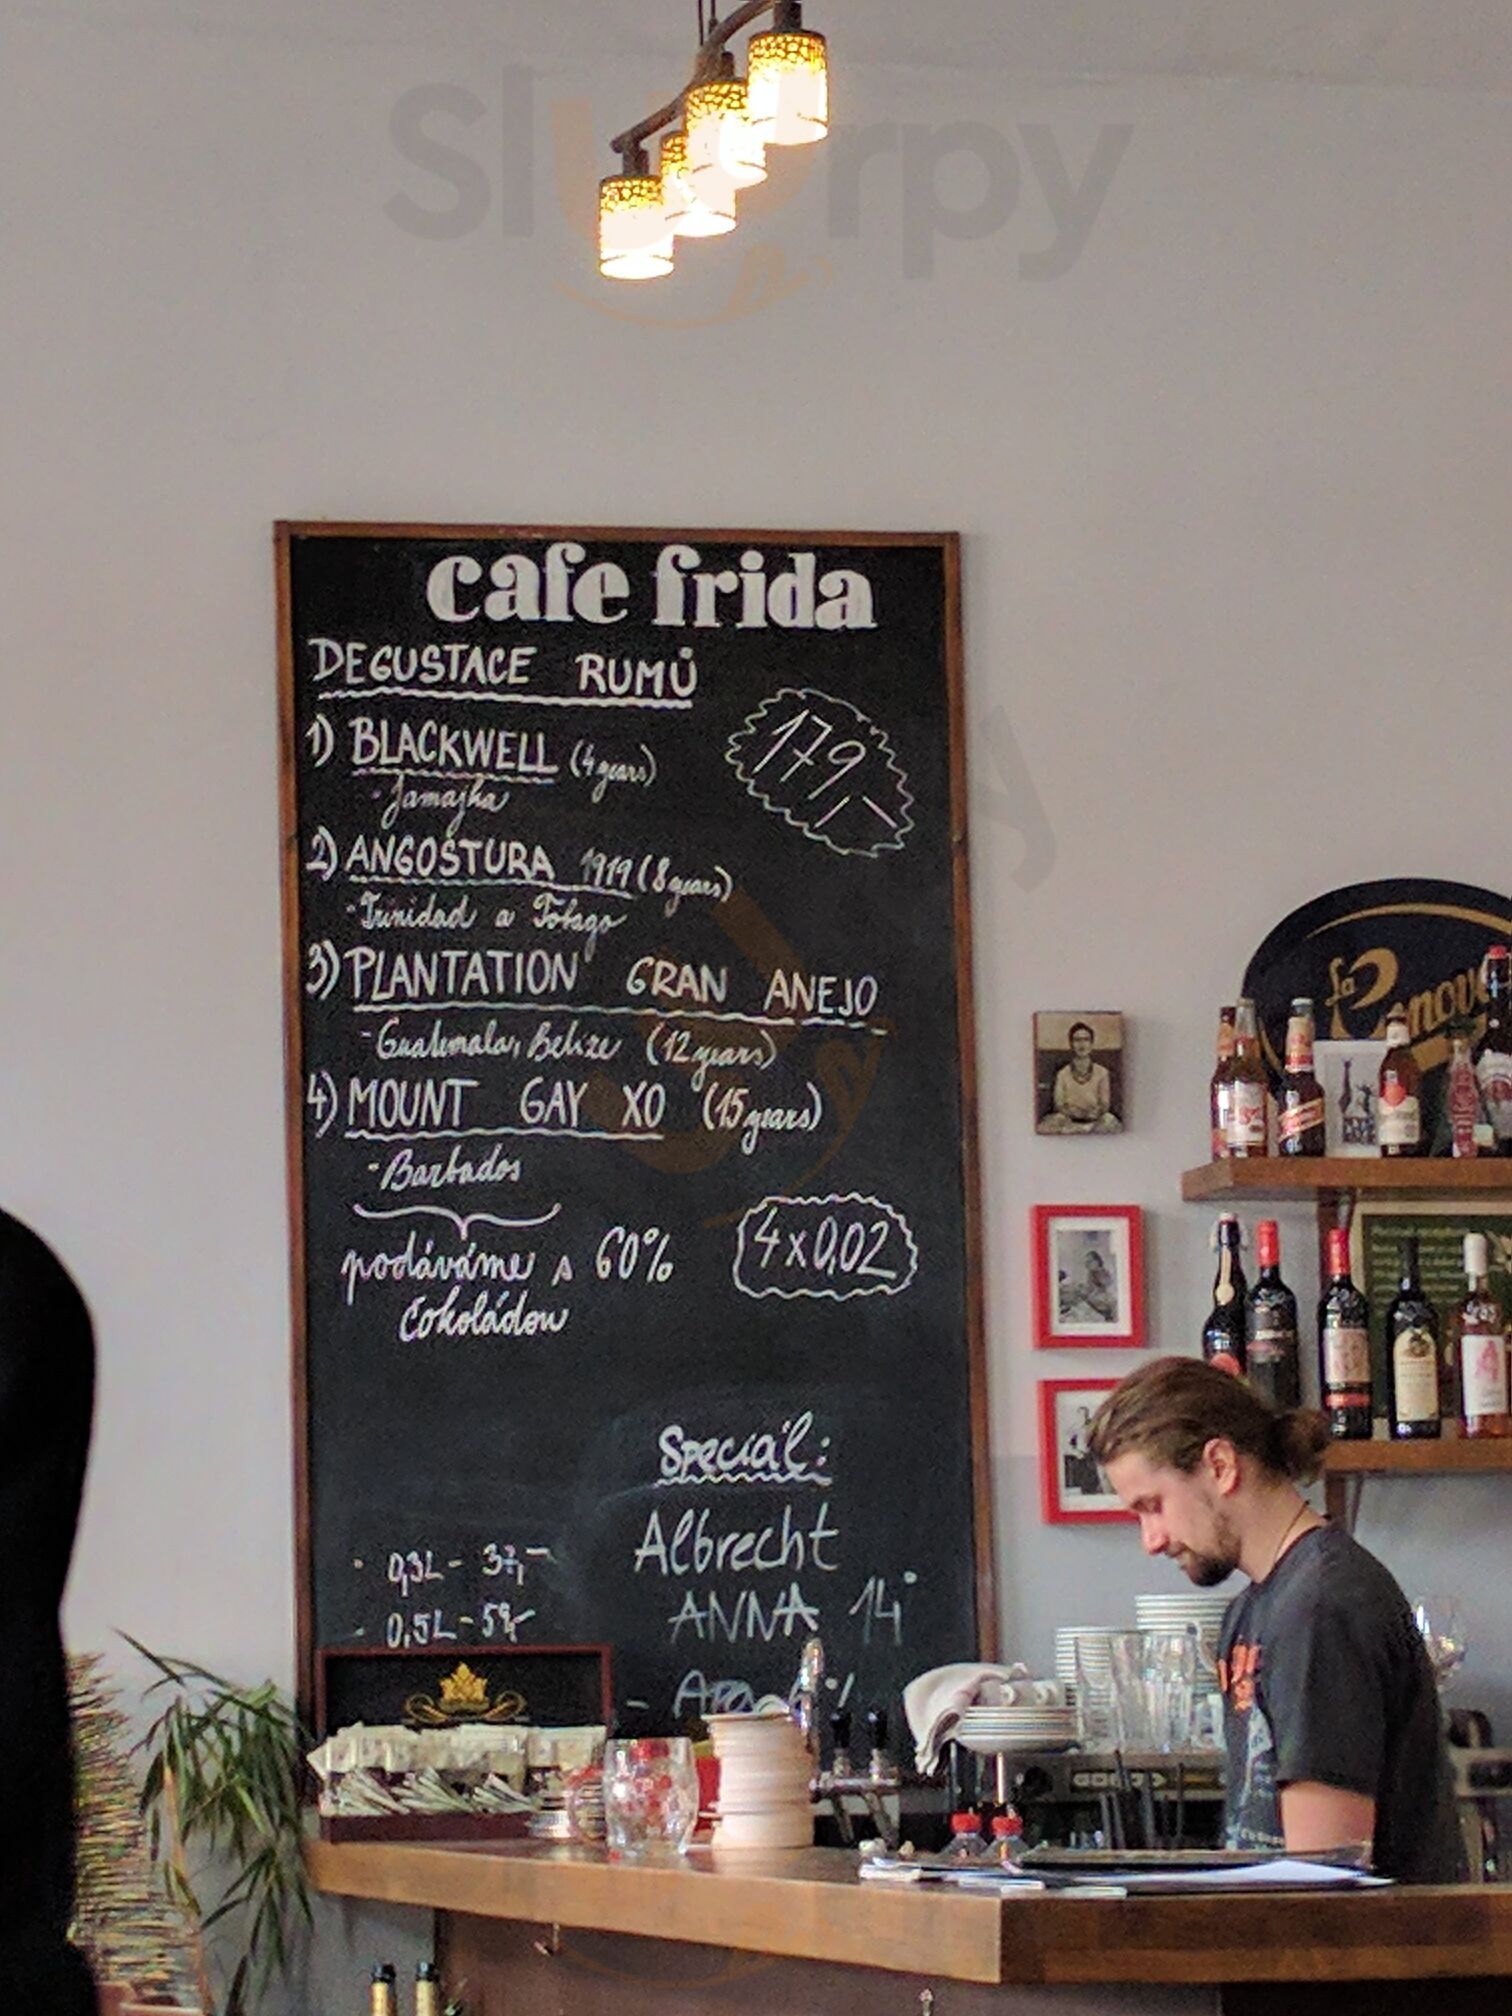 Slurpy
cafe frida
DEGUSTACE RUMŮ
1) BLACKWELL (4 years)
- Jamajka
179,-
2) ANGOSTURA 1919 (8 years)
- Trinidad a Tobago
3) PLANTATION GRAN ANEJO
- Guatemala, Belize (12 years)
4) MOUNT GAY XO (15 years)
- Barbados
podáváme s 60%
čokoládou
4x0,02
Speciál:
Albrecht
ANNA 14°
- 0,3L - 37,-
- 0,5L - 59,-
la